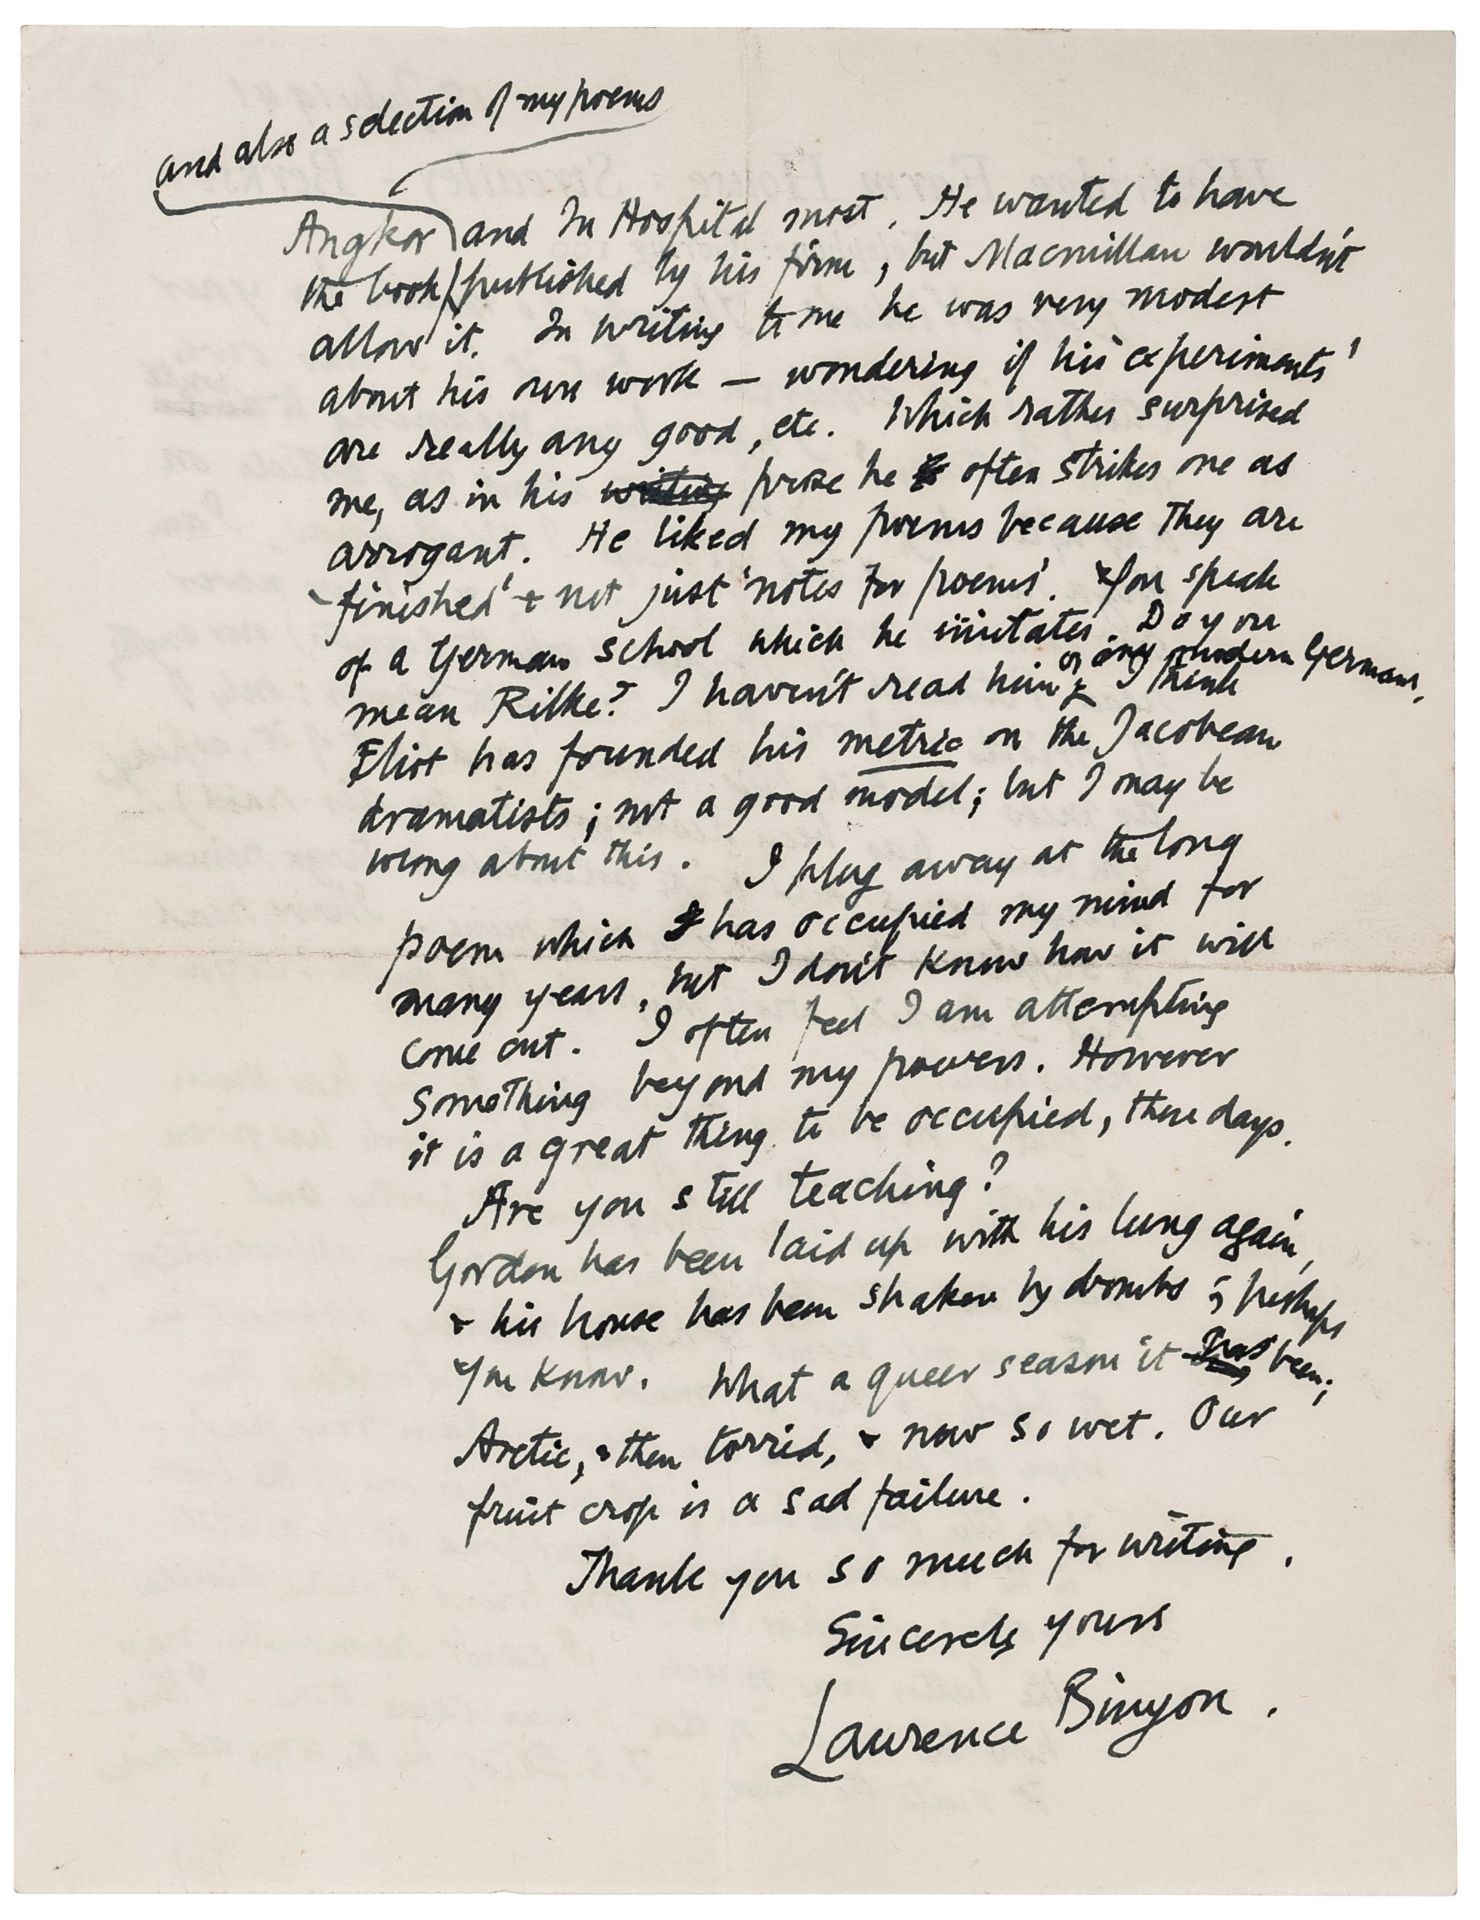 and also a selection of my poems
Angkor and In Hospital most. He wanted to have
the book published by his firm, but Macmillan wouldn't
allow it. In writing to me he was very modest
about his own work — wondering if his 'experiments'
are really any good, etc. Which rather surprised
me, as in his writing prose he often strikes one as
arrogant. He liked my poems because they are
'finished' + not just 'notes for poems'. You speak
of a German school which he imitates. Do you
mean Rilke? I haven't read him or any modern Germans.
I think
Eliot has founded his metric on the Jacobean
dramatists; not a good model; but I may be
wrong about this. I plug away at the long
poem which has occupied my mind for
many years, but I don't know how it will
come out. I often feel I am attempting
something beyond my powers. However
it is a great thing to be occupied, these days.
Are you still teaching?
Gordon has been laid up with his lung again,
& his house has been shaken by bombs; perhaps
you know. What a queer season it has been;
Arctic, & then torrid, & now so wet. Our
fruit crop is a sad failure.
Thank you so much for writing.
Sincerely yours
Laurence Binyon.